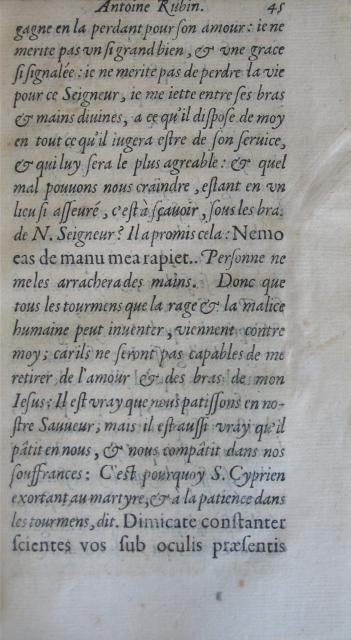 Antoine Rubin. 45
gagne en la perdant pour son amour: ie ne
merite pas vn si grand bien, & vne grace
si signalée: ie ne merite pas de perdre la vie
pour ce Seigneur, ie me iette entre ses bras
& mains diuines, a ce qu'il dispose de moy
en tout ce qu'il iugera estre de son seruice,
& qui luy sera le plus agreable: & quel
mal pouuons nous craindre, estant en vn
lieu si asseuré, c'est à sçauoir, sous les bras
de N. Seigneur? Il a promis cela: Nemo
eas de manu mea rapiet.. Personne ne
me les arrachera des mains. Donc que
tous les tourmens que la rage & la malice
humaine peut inuenter, viennent contre
moy; car ils ne seront pas capables de me
retirer de l'amour & des bras de mon
Iesus: Il est vray que nous patissons en no-
stre Sauueur; mais il est aussi vray qu'il
pâtit en nous, & nous compâtit dans nos
souffrances: C'est pourquoy S. Cyprien
exortant au martyre, & à la patience dans
les tourmens, dit. Dimicate constanter
scientes vos sub oculis præsentis